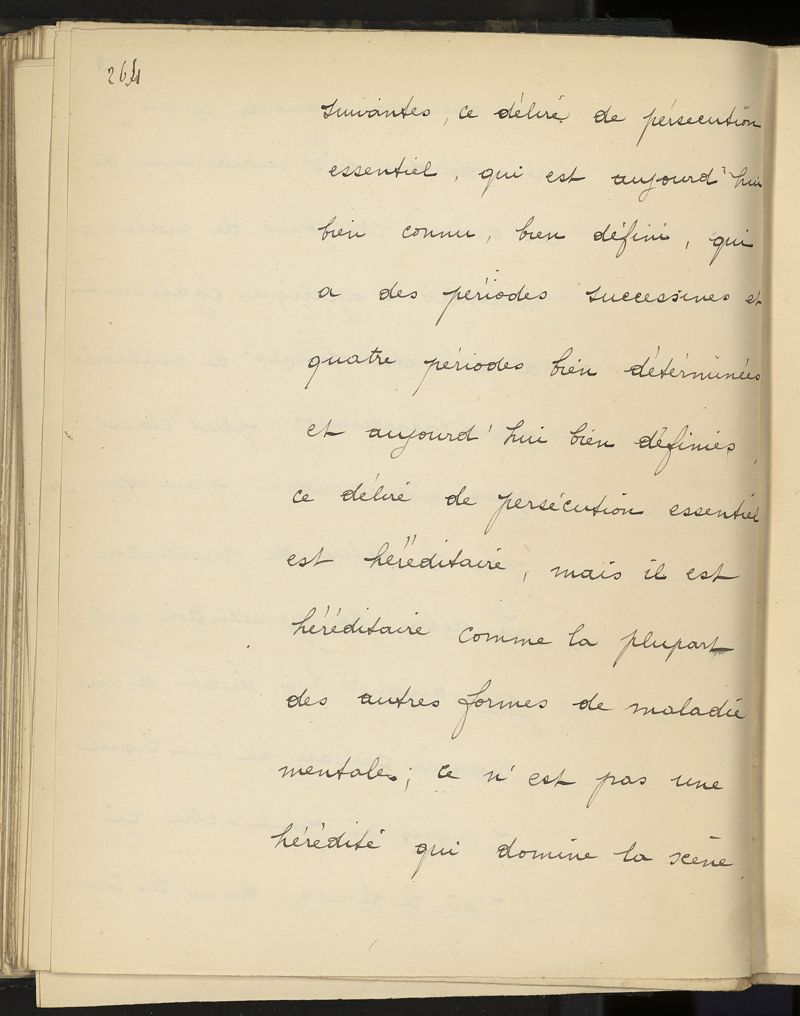 264
suivantes, ce délire de pérsecution
essentiel, qui est aujourd'hui
bien connu, bien défini, qui
a des périodes successives et
quatre périodes bien détérminées
et aujourd'hui bien définies,
ce déliré de persécution essentiel
est héréditaire, mais il est
héréditaire comme la plupart
des autres formes de maladie
mentales; ce n'est pas une
hérédité qui domine la scène.